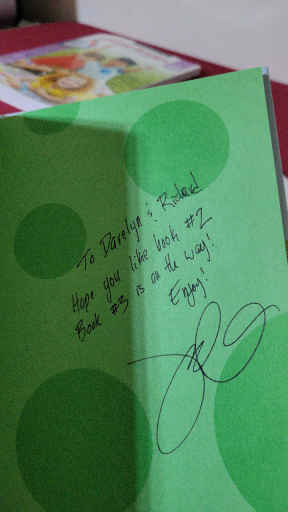 To Darelyn & Richard
Hope you like book #2
Book #3 is on the way!
Enjoy!